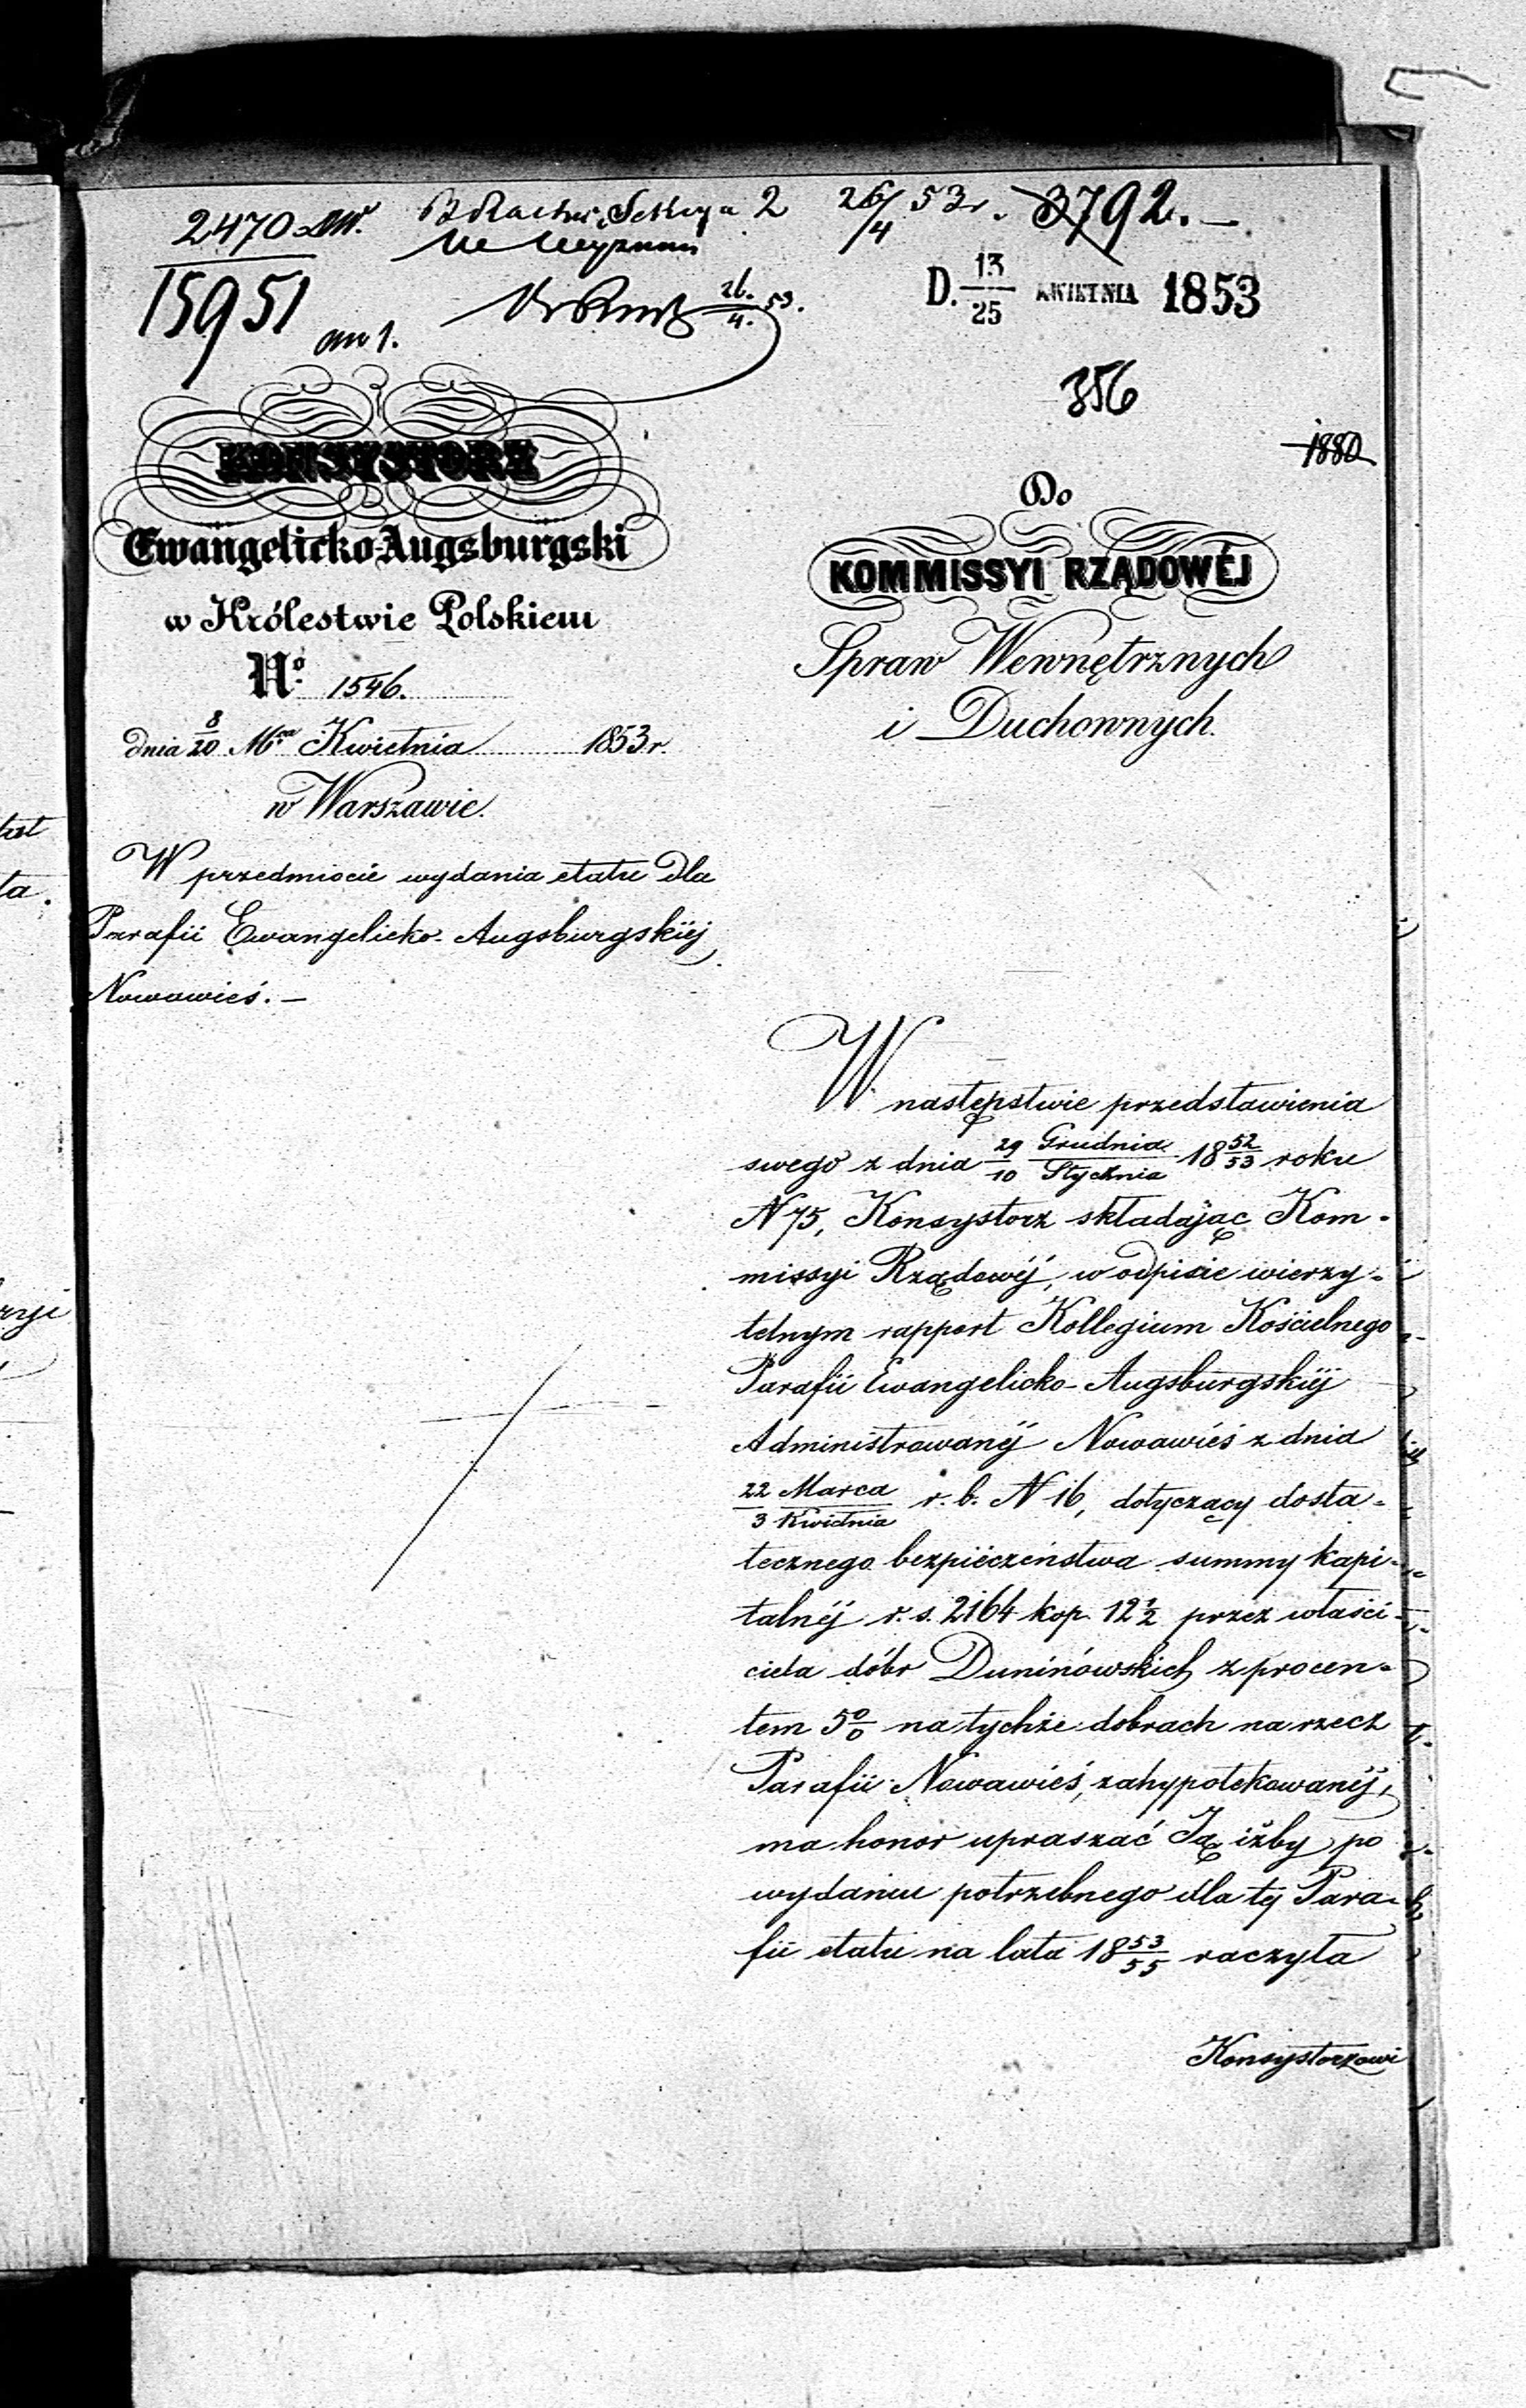 2470
15951
26/4 53 r. 3792.—
26./4. 53.
D. 13/25 KWIETNIA 1853
356
1880
KONSYSTORZ
Ewangelicko-Augsburgski
w Królestwie Polskiem
No. 1546.
dnia 8/20 Mca Kwietnia 1853 r.
w Warszawie.
W przedmiocie wydania etatu dla
Parafii Ewangelicko-Augsburgskiéj
Nowawieś.—
Do
KOMMISSYI RZĄDOWÉJ
Spraw Wewnętrznych
i Duchownych.
W następstwie przedstawienia
swego z dnia 29 Grudnia/10 Stycznia 18 52/53 roku
N 75, Konsystorz składając Kom-
missyi Rządowéj, w odpisie wierzy-
telnym rapport Kollegium Kościelnego
Parafii Ewangelicko-Augsburgskiéj
Administrowanéj Nowawieś z dnia
22 Marca/3 Kwietnia r. b. N 16, dotyczący dosta-
tecznego bezpieczeństwa summy kapi-
talnéj r. s. 2164 kop. 12½ przez właści-
ciela dóbr Duninowskich z procen-
tem 5% na tychże dobrach na rzecz
Parafii Nowawieś, zahypotekowanéj,
ma honor upraszać Ją iżby po
wydaniu potrzebnego dla téj Para-
fii etatu na lata 18 53/55 raczyła
Konsystorzowi